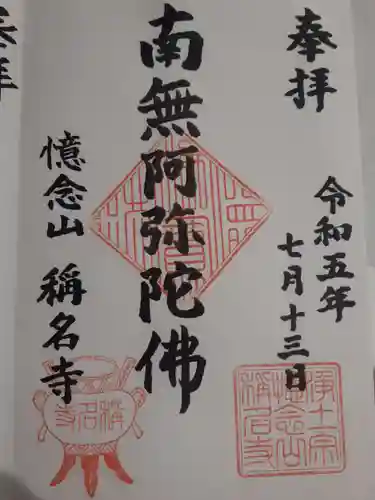 奉拝
令和五年
七月十三日
南無阿弥陀佛
憶念山
稱名寺
浄土宗
憶念山
稱名寺
稱名寺
拝